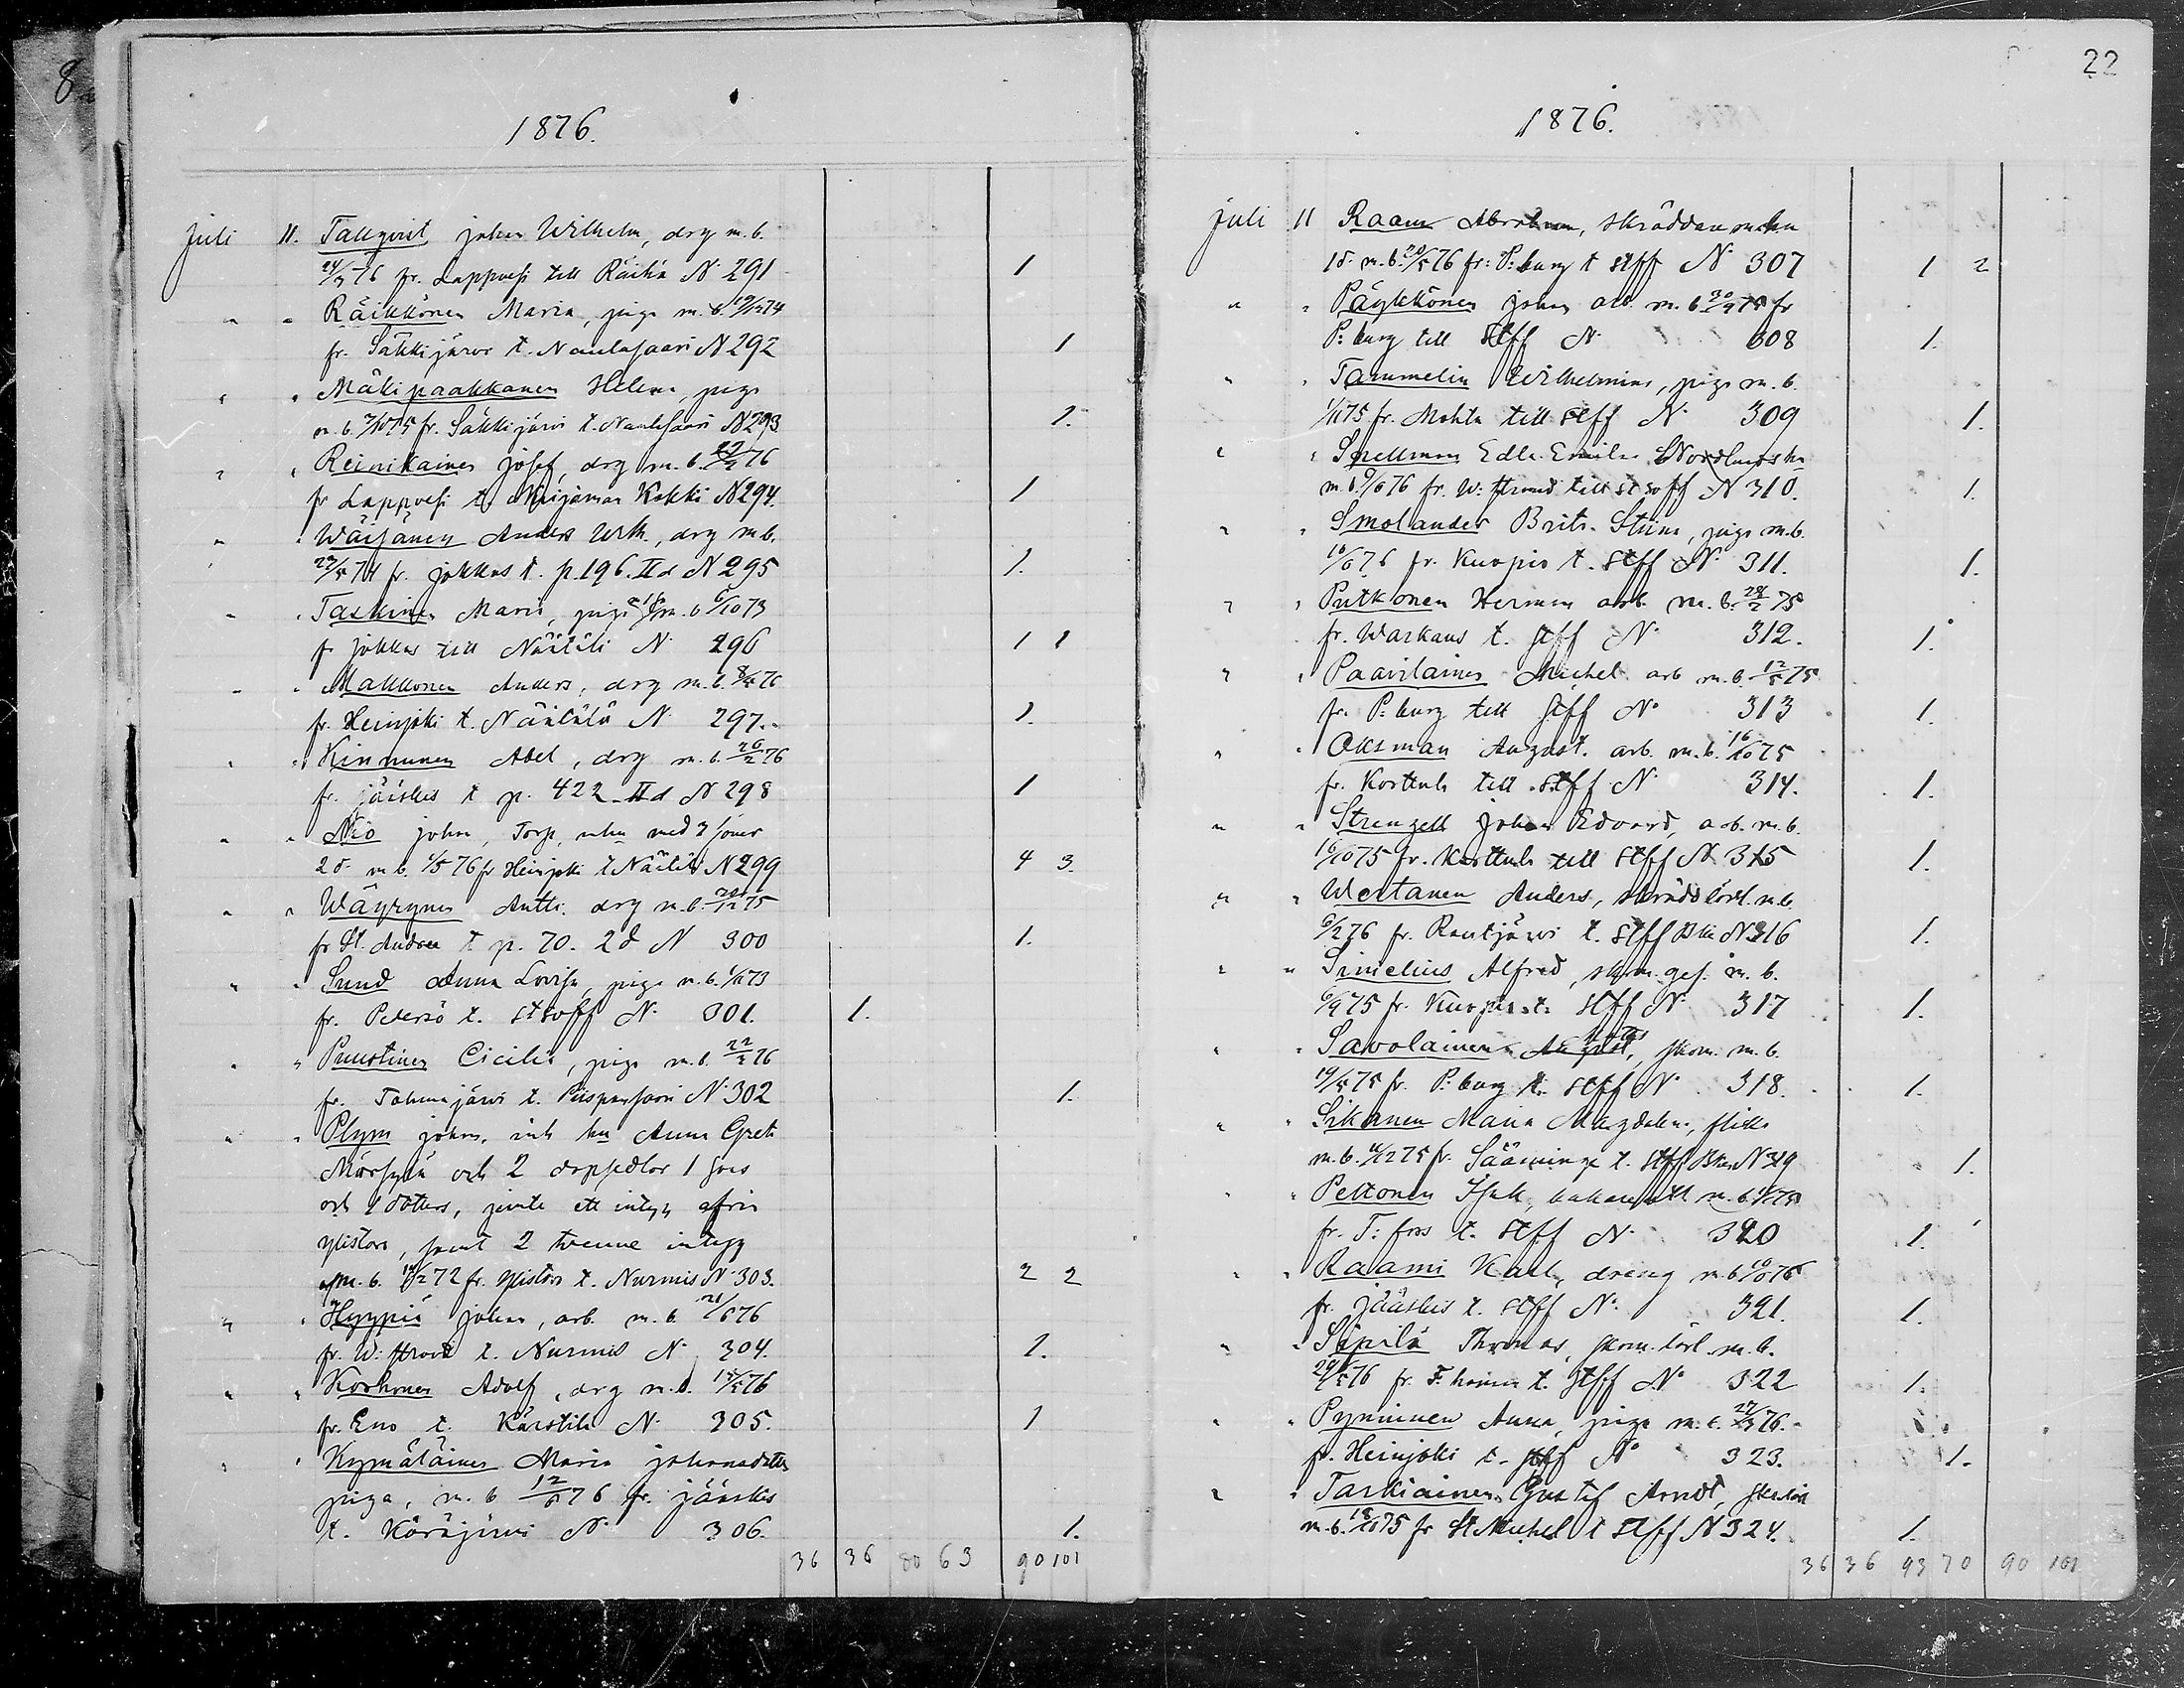 8
1876.
juli 11. Tallqvist johan Wilhelm, drg m.b.
24/3 76 fr. Lappvesi till Räihä N. 291 1
" " Räikkönen Maria, piga m.b. 19/12 74
fr. Säkkijärvi t. Naulasaari N 292 1
" " Mäkipaakkanen Helena, piga
m.b. 7/10 75 fr. Säkkijärvi t. Naulasaari N 293 1.
" " Reinikainen josef, drg m.b. 22/2 76
fr Lappvesi t. Kokki N 294. 1
" " Wäisänen Anders drg m.b.
27/5 74 fr. jokkas t. p. 196. IId N 295 1.
" " Taskinen Maria, piga m.b. 6/10 73
fr jokkas till Näätälä N. 296 1 1
" " Makkonen Anders, drg m.b. 8/4 76
fr. Heinjoki t. Näätälä N. 297. 1.
" " Kinnunen Abel, drg m.b. 26/2 76
fr. jääskis t p. 422 IId N 298 1
" " Nio johan, Torp, m hu med 3 söner
2 d. m.b. 1/5 76 fr Heinjoki t Näätälä N 299 4 3.
" " Wäyrynen Antti. drg m.b. 29/12 75
fr St. Andrea t p. 70. 2 d N 300 1.
" " Sund Anna Lovisa, piga m.b. 1/11 73
fr. Petersö t. St soff N. 301. 1.
" " Puustinen Cicilia, piga m.b. 22/3 76
fr. Tohmajärvi t. Piispansaari N. 302 1.
" " Plym johan, inh hu Anna Greta
och 2 dopsedlar 1 sons
och 1 dotters, jemte ett intyg från
Ylistaro, samt 2 tvenne intyg
m.b. 14/2 72 fr. Ylistaro t. Nurmis N. 303. 2 2
" " Hyypiä johan, arb. m.b. 21/6 76
fr. W: strand t. Nurmis N. 304. 1.
" " Korhonen Adolf, drg m.b. 15/5 76
fr. Eno t. Kärstilä N. 305. 1
" " Kymäläinen Maria johansdotter
piga, m.b 12/6 76 fr. jääskis
t. Käräjärvi N. 306. 1.
36 36 80 63 90 101
22
1876.
juli 11 Raami Abraham, skräddare m hu
1 d. m.b. 20/5 76 fr: P: burg t Stff N 307 1 2
" " Päykkönen johan arb. m.b 30/9 75 fr
P: burg till Stff N. 308 1.
" " Tammelin Wilhelmina, piga m.b.
1/11 75 fr. Mohla till Stff N. 309 1.
" " Snellman Edla Emilia
m.b. 9/6 76 fr. W: strand till St soff N 310. 1.
" " Smolander Brita Stina, piga m.b.
16/6 76 fr. Kuopio t. Stff N. 311. 1.
" " Putkonen Herman arb. m.b. 28/2 75
fr. Warkaus t. Stff N. 312. 1.
" " Paavilainen Michel arb m.b. 12/5 75
fr. P: burg till Stff N. 313 1.
" " Oksman August. arb. m.b. 16/10 75
fr. Korttula till Stff N. 314. 1.
" " Strengell johan Edvard, arb. m.b.
16/10 75 fr. Korttula till Stff N 315 1.
" " Wertanen Anders, skräddlärl. m.b.
6/2 76 fr. Rautjärvi t. Stff Bkr N 316 1.
" " Simelius Alfred, skom. ges. m.b.
6/9 75 fr. Kuopio t. Stff N. 317 1.
" " Savolainen skom. m.b.
19/5 75 fr. P: burg t. Stff N. 318. 1.
" " Sikanen Maria Magdalena, flicka
m.b. 11/12 75 fr. Sääminge t. Stff Bkr N 319 1.
" " Peltonen Isak,
fr. T: fors t. Stff N. 320 1.
" " Raami Karl, dreng m.b 10/6 76
fr. jääskis t. Stff N. 321. 1.
" " Sipilä Thomas, skom. lärl. m.b.
24/5 76 fr. F: hamn t. Stff N. 322 1.
" " Pynninen Anna, piga m.b. 27/3 76.
fr. Heinjoki t. Stff N. 323. 1.
" " Taskiainen Gustaf Arndt,
m.b. 18/10 75 fr St Michel t Stff N 324. 1.
36 36 93 70 90 101